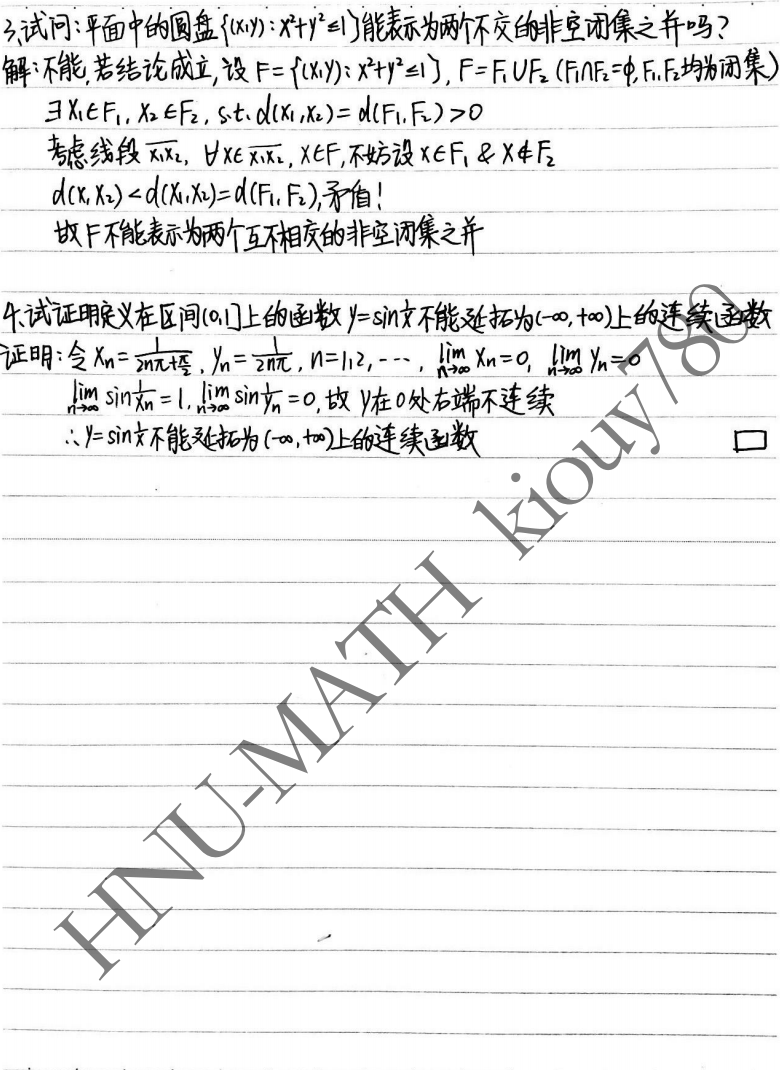 3.试问:平面中的圆盘{(x,y):x²+y²≤1}能表示为两个不交的非空闭集之并吗?
解:不能,若结论成立,设F={(x,y):x²+y²≤1},F=F₁∪F₂(F₁∩F₂=φ,F₁,F₂均为闭集)
∃X₁∈F₁,X₂∈F₂,s.t.d(x₁,x₂)=d(F₁,F₂)>0
考虑线段x₁x₂,∀x∈x₁x₂,x∈F,不妨设x∈F₁&x∉F₂
d(x,x₂)<d(x₁,x₂)=d(F₁,F₂),矛盾!
故F不能表示为两个互不相交的非空闭集之并
4.试证明定义在区间(0,1]上的函数y=sin1/x不能延拓为(-∞,+∞)上的连续函数
证明:令Xn=1/(2nπ+π/2),Yn=1/(2nπ),n=1,2,…,lim n→∞ Xn=0,lim n→∞ Yn=0
lim n→∞ sin1/Xn=1,lim n→∞ sin1/Yn=0,故y在0处右端不连续
∴y=sin1/x不能延拓为(-∞,+∞)上的连续函数 □
HNU-MATH kiouy780